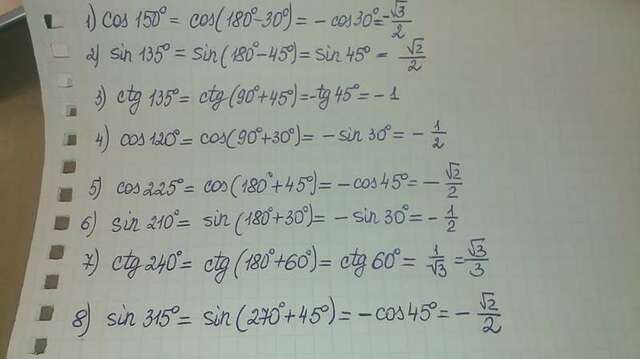 1) cos 150° = cos(180°-30°) = -cos30° = -√3/2
2) sin 135° = sin(180°-45°) = sin 45° = √2/2
3) ctg 135° = ctg(90°+45°) = -tg45° = -1
4) cos 120° = cos(90°+30°) = -sin 30° = -1/2
5) cos 225° = cos(180°+45°) = -cos45° = -√2/2
6) sin 210° = sin(180°+30°) = -sin 30° = -1/2
7) ctg 240° = ctg(180°+60°) = ctg 60° = 1/√3 = √3/3
8) sin 315° = sin(270°+45°) = -cos45° = -√2/2